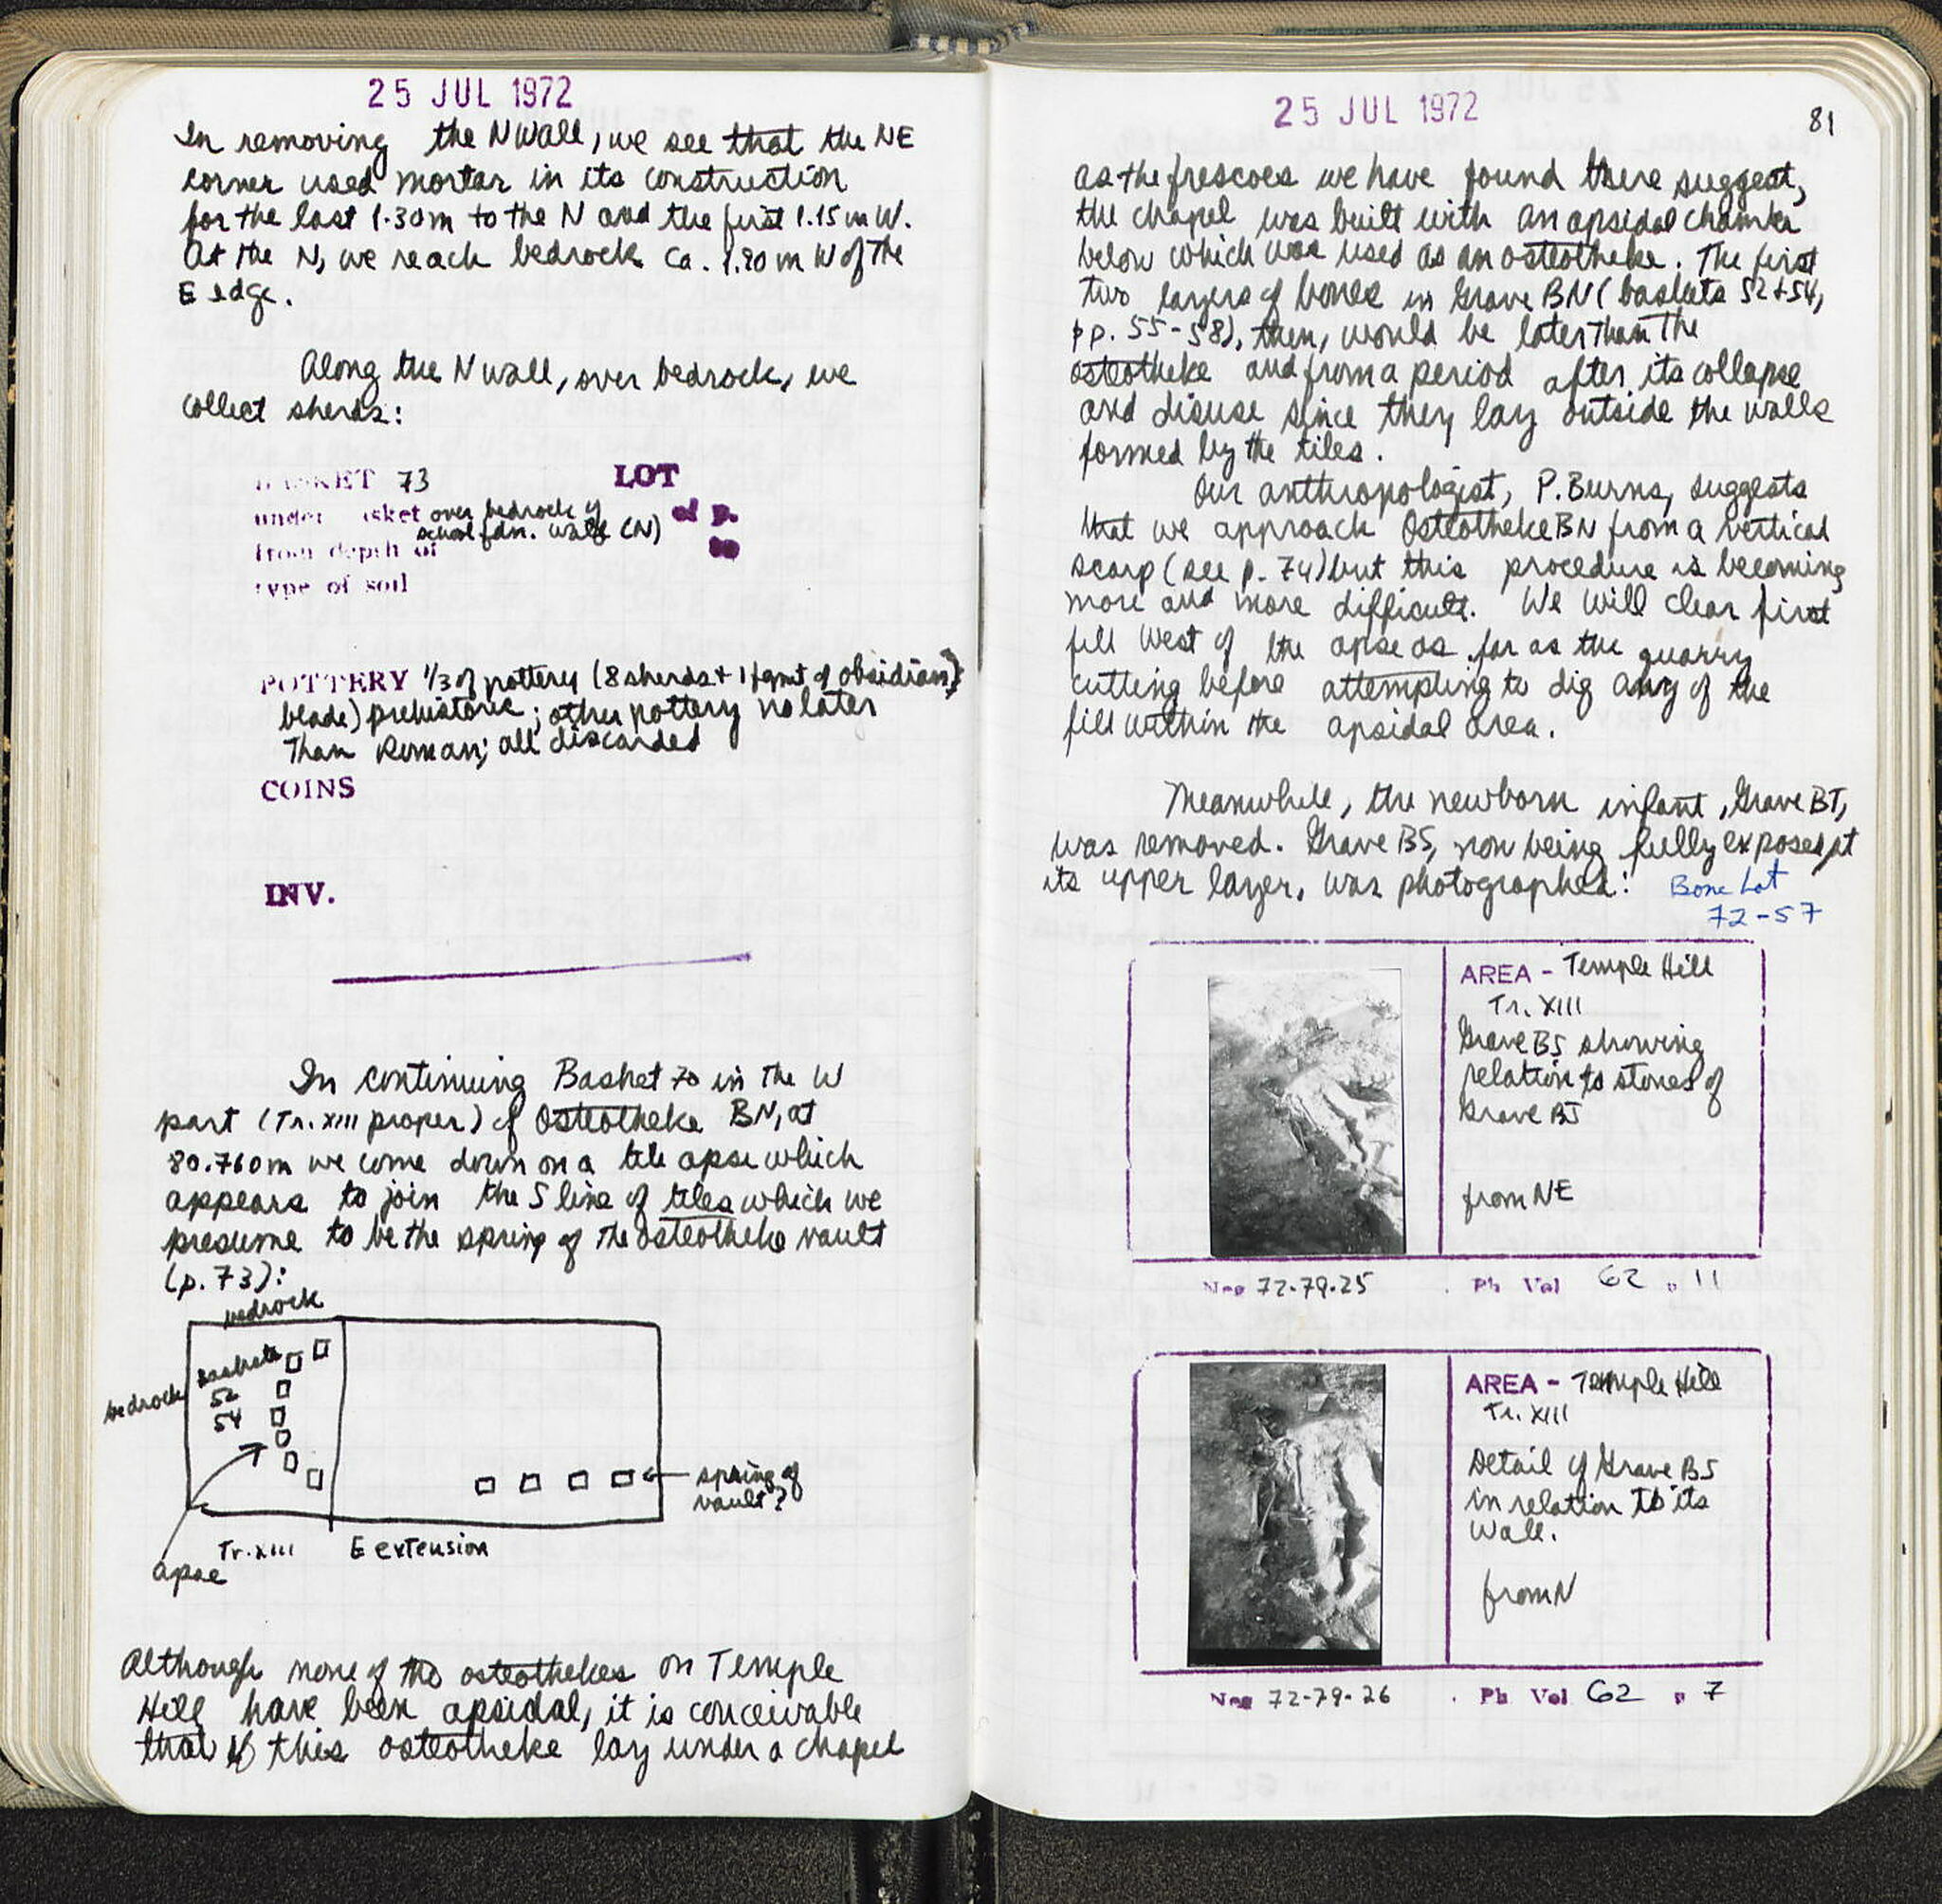 25 JUL 1972
In removing the N Wall, we see that the NE
corner used mortar in its construction
for the last 1.30m to the N and the first 1.15m W.
At the N, we reach bedrock ca. 1.20m W of the
E edge.
Along the N wall, over bedrock, we
collect sherds:
BASKET 73 LOT
under basket over bedrock of
school fdn. wall (N)
of p.
from depth of
type of soil
POTTERY 1/3 of pottery (8 sherds + 1 fgmt of obsidian
blade) prehistoric; other pottery no later
than Roman; all discarded
COINS
INV.
In continuing Basket 70 in the W
part (Tr. XIII proper) of Osteotheke BN, at
80.760m we come down on a tile apse which
appears to join the S line of tiles which we
presume to be the spring of the osteotheke vault
(p. 73):
bedrock
bedrock
Baskets
52
54
spring of
vault?
Tr. XIII E extension
apse
Although none of the osteothekes on Temple
Hill have been apsidal, it is conceivable
that if this osteotheke lay under a chapel
25 JUL 1972
81
as the frescoes we have found there suggest,
the chapel was built with an apsidal chamber
below which was used as an osteotheke. The first
two layers of bones in Grave BN (baskets 52+54,
pp. 55-58), then, would be later than the
osteotheke and from a period after its collapse
and disuse since they lay outside the walls
formed by the tiles.
Our anthropologist, P. Burns, suggests
that we approach Osteotheke BN from a vertical
scarp (see p. 74) but this procedure is becoming
more and more difficult. We will clear first
fill west of the apse as far as the quarry
cutting before attempting to dig any of the
fill within the apsidal area.
Meanwhile, the newborn infant, Grave BT,
was removed. Grave BS, now being fully exposed at
its upper layer, was photographed: Bone Lot
72-57
AREA - Temple Hill
Tr. XIII
Grave BS showing
relation to stones of
Grave BJ
from NE
Neg 72-79-25 . Ph Vol 62 p 11
AREA - Temple Hill
Tr. XIII
Detail of Grave BS
in relation to its
wall.
from N
Neg 72-79-26 . Ph Vol 62 p 7